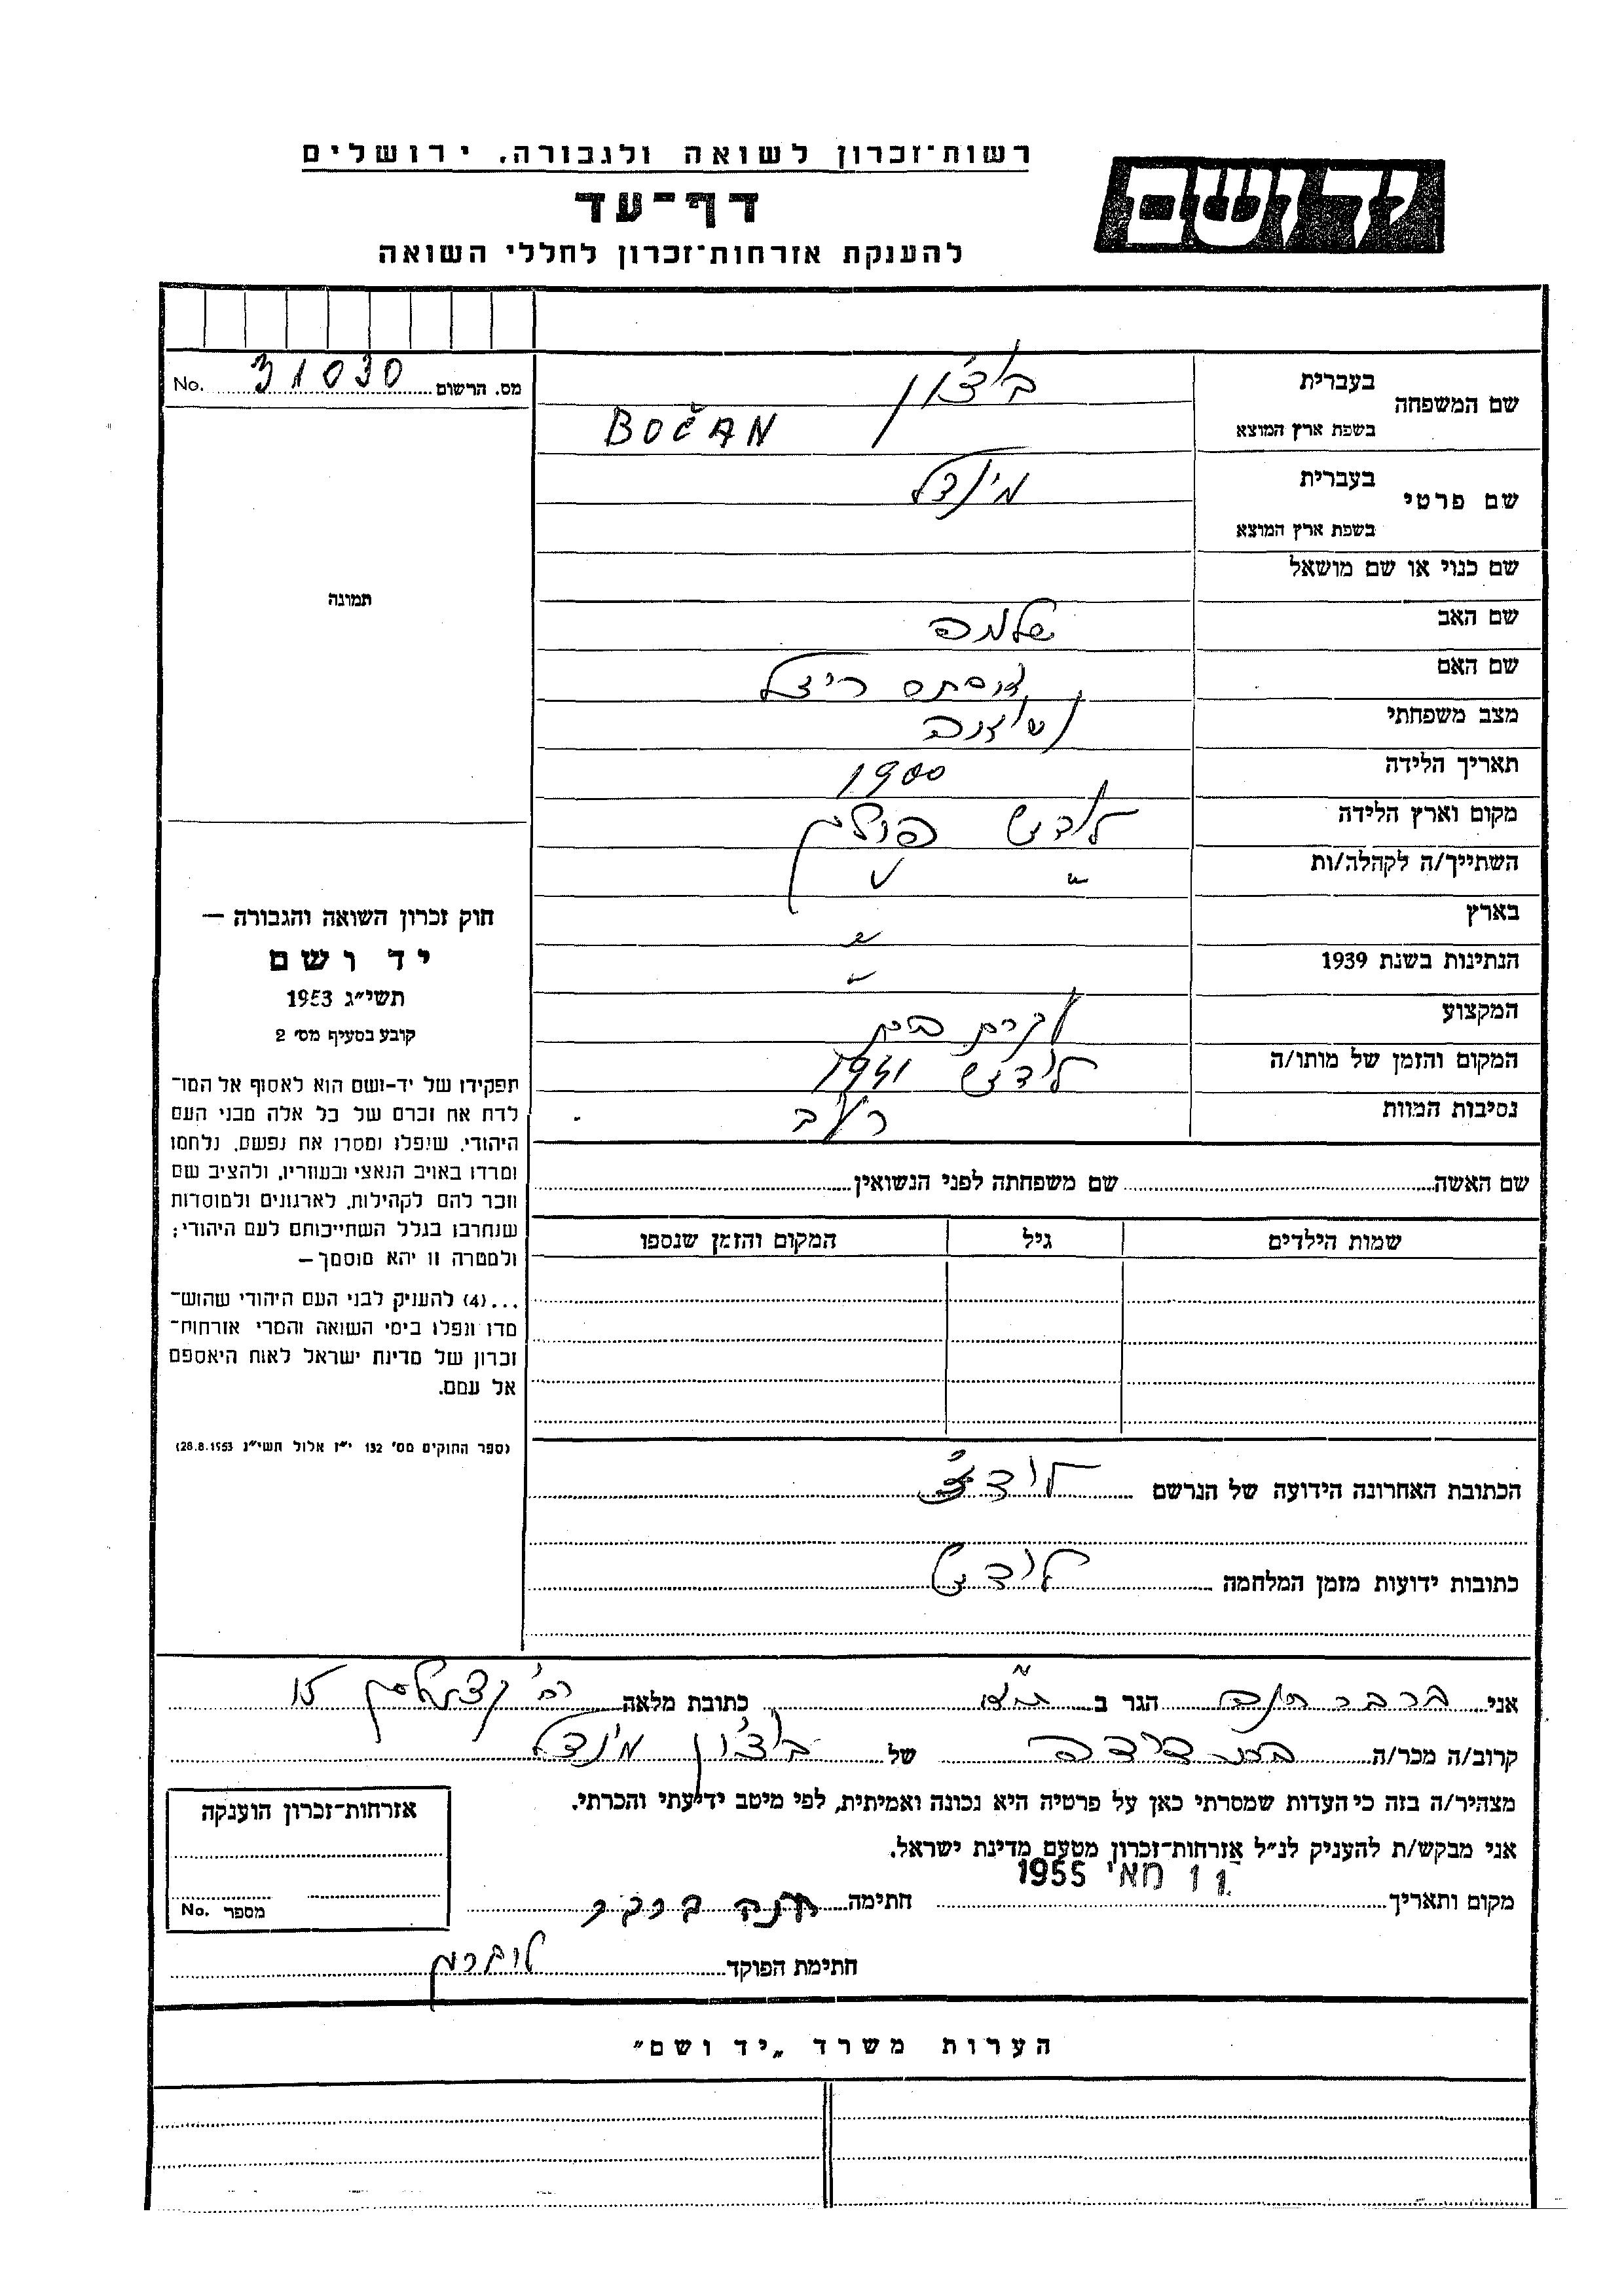 רשות־זכרון לשואה ולגבורה, ירושלים
יד ושם
דף־עד
להענקת אזרחות־זכרון לחללי השואה
מס. הרשום 31030 No.
שם המשפחה
בעברית
בוצ'ון
בשפת ארץ המוצא
BOČAN
שם פרטי
בעברית
מינדל
בשפת ארץ המוצא
תמונה
שם כנוי או שם מושאל
שם האב שלמה
שם האם
מצב משפחתי נשואה
תאריך הלידה 1900
מקום וארץ הלידה לודז' פולין
השתייך/ה לקהלה/ות "
בארץ "
הנתינות בשנת 1939 "
המקצוע עקרת בית
המקום והזמן של מותו/ה לודז' 1941
נסיבות המוות רעב
חוק זכרון השואה והגבורה —
יד ושם
תשי״ג 1953
קובע בסעיף מס׳ 2
תפקידו של יד-ושם הוא לאסוף אל המו־
לדת את זכרם של כל אלה מבני העם
היהודי, שנפלו ומסרו את נפשם, נלחמו
ומרדו באויב הנאצי ובעוזריו, ולהציב שם
וזכר להם לקהילות, לארגונים ולמוסדות
שנחרבו בגלל השתייכותם לעם היהודי;
ולמטרה זו יהא מוסמך—
...(4) להעניק לבני העם היהודי שהוש־
מדו ונפלו בימי השואה והמרי אזרחות־
זכרון של מדינת ישראל לאות היאספם
אל עמם.
(ספר החוקים מס׳ 132 י״ז אלול תשי״ג 28.8.1953)
שם האשה שם משפחתה לפני הנשואין
שמות הילדים גיל המקום והזמן שנספו
הכתובת האחרונה הידועה של הנרשם לודז'
כתובות ידועות מזמן המלחמה לודז'
אני ברבר חנה הגר ב כתובת מלאה רח' 15
קרוב/ה מכר/ה בת דודה של בוצ'ון מינדל
מצהיר/ה בזה כי העדות שמסרתי כאן על פרטיה היא נכונה ואמיתית, לפי מיטב ידיעתי והכרתי.
אני מבקש/ת להעניק לנ״ל אזרחות־זכרון מטעם מדינת ישראל.
11 מאי 1955
מקום ותאריך חתימה חנה ברבר
אזרחות־זכרון הוענקה
מספר No.
חתימת הפוקד ליברמן
הערות משרד „יד ושם״